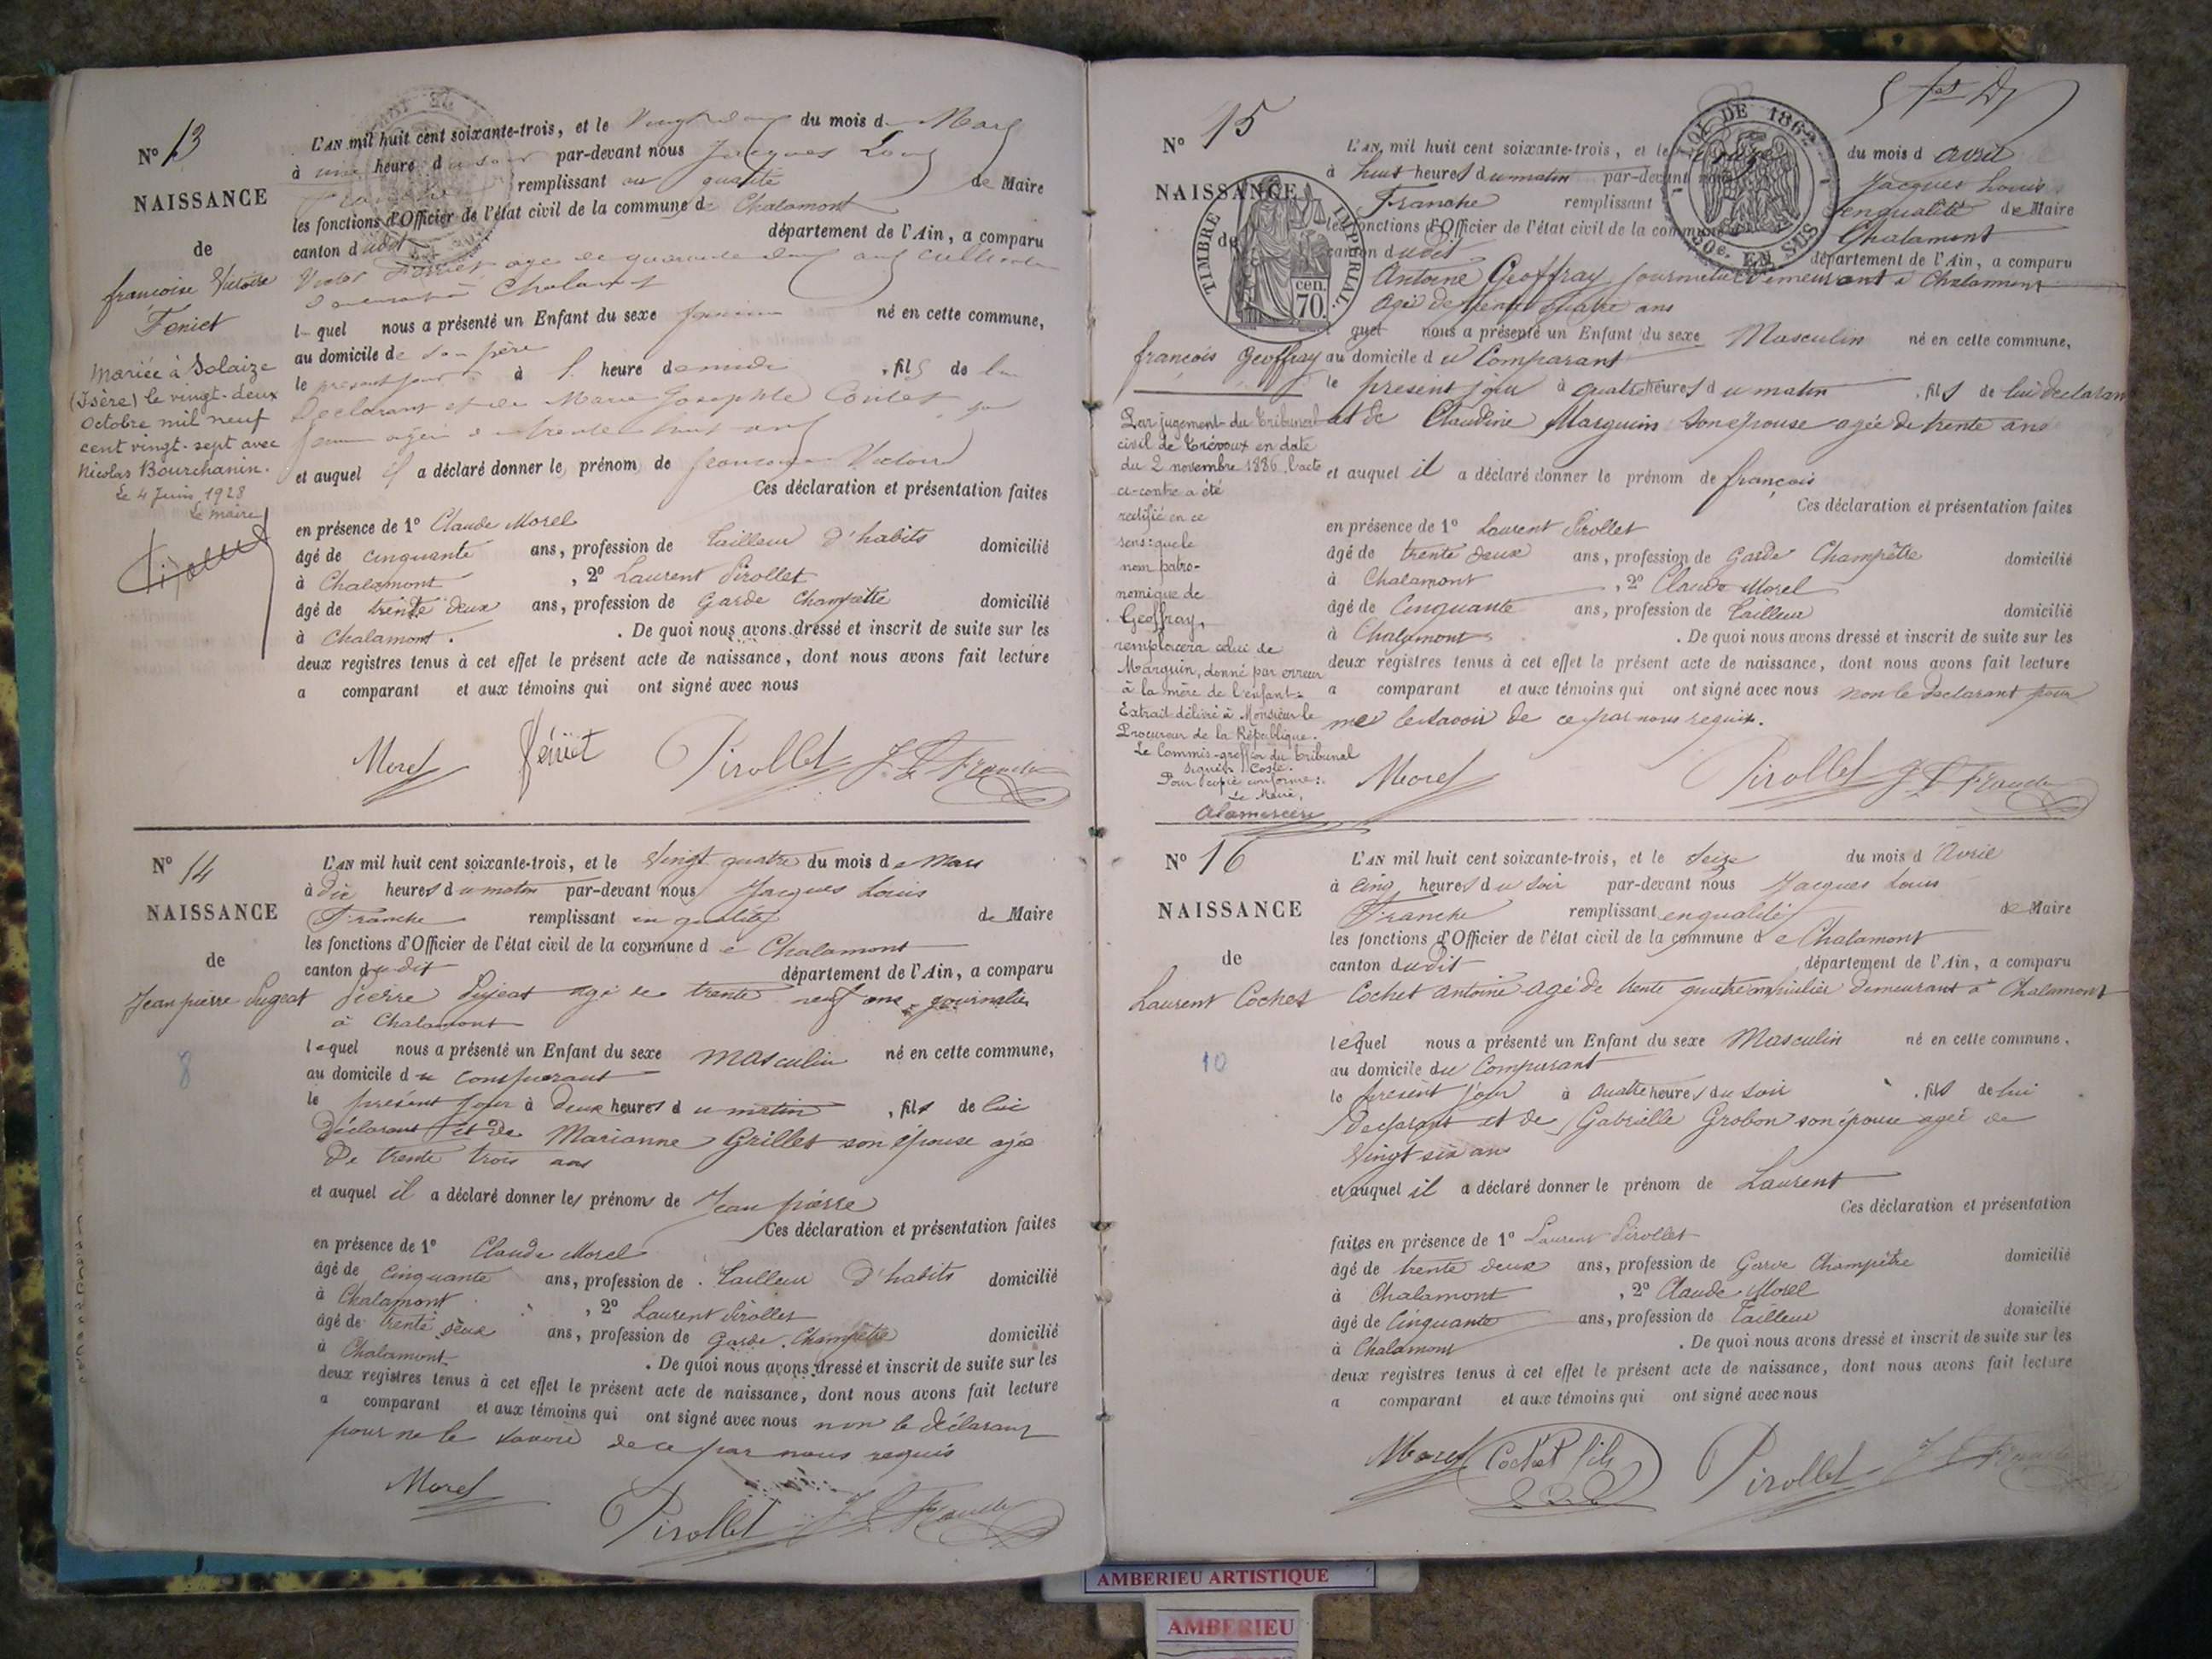 N° 13
NAISSANCE
de
françoise Victoire
Feniet
Mariée à Solaize
(Isère) le vingt-deux
Octobre mil neuf
cent vingt-sept avec
Nicolas Bourchanin.
Le 4 Juin 1928
Le maire
L'AN mil huit cent soixante-trois, et le du mois d Mars
à une heure du soir par-devant nous Jacques Louis
remplissant qualité de Maire
les fonctions d'Officier de l'état civil de la commune de Chalamont
canton dudit département de l'Ain, a comparu
Victor agé de quarante ans
Chalamont
l quel nous a présenté un Enfant du sexe né en cette commune,
au domicile de son père
le présent jour à heure de midi , fils de lui
Declarant et de Marie Josephte
agée de trente huit ans
et auquel il a déclaré donner le prénom de
Ces déclaration et présentation faites
en présence de 1° Claude Morel
âgé de cinquante ans, profession de tailleur d'habits domicilié
à Chalamont , 2° Laurent Pirollet
âgé de trente deux ans, profession de Garde Champêtre domicilié
à Chalamont. . De quoi nous avons dressé et inscrit de suite sur les
deux registres tenus à cet effet le présent acte de naissance, dont nous avons fait lecture
a comparant et aux témoins qui ont signé avec nous
Morel Pirollet J L Franche
N° 14
NAISSANCE
de
Jean pierre Pugeat
8
L'AN mil huit cent soixante-trois, et le Vingt quatre du mois de Mars
à dix heures du matin par-devant nous Jacques Louis
Franche remplissant en qualité de Maire
les fonctions d'Officier de l'état civil de la commune de Chalamont
canton dudit département de l'Ain, a comparu
Pierre Pujeat agé de trente neuf ans journalier
à Chalamont
lequel nous a présenté un Enfant du sexe Masculin né en cette commune,
au domicile du comparant
le présent jour à deux heures du matin , fils de lui
Déclarant et de Marianne Grillet son épouse agée
De trente trois ans
et auquel il a déclaré donner les prénoms de Jean pierre
Ces déclaration et présentation faites
en présence de 1° Claude Morel
âgé de Cinquante ans, profession de tailleur d'habits domicilié
à Chalamont , 2° Laurent Pirollet
âgé de trente deux ans, profession de Garde Champêtre domicilié
à Chalamont. . De quoi nous avons dressé et inscrit de suite sur les
deux registres tenus à cet effet le présent acte de naissance, dont nous avons fait lecture
a comparant et aux témoins qui ont signé avec nous non le déclarant
pour ne le savoir de ce par nous requis
Morel Pirollet J L Franche
N° 15
NAISSANCE
de
TIMBRE IMPÉRIAL.
70 cen.
LOI DE 1862
50e. EN SUS
françois Geoffray
Par jugement du Tribunal
civil de Trévoux en date
du 2 novembre 1886, l'acte
ci-contre a été
rectifié en ce
sens: que le
nom patro-
nomique de
Geoffray,
remplacera celui de
Marguin, donné par erreur
à la mère de l'enfant.
Extrait délivré à Monsieur le
Procureur de la République.
Le Commis-greffier du tribunal
signé: Coste.
Pour copie conforme:
Le Maire,
L'AN mil huit cent soixante-trois, et le du mois d avril
à huit heures du matin par-devant nous Jacques Louis
Franche remplissant en qualité de Maire
les fonctions d'Officier de l'état civil de la commune Chalamont
canton dudit département de l'Ain, a comparu
Antoine Geoffray journalier demeurant à Chalamont
agé de trente quatre ans
quel nous a présenté un Enfant du sexe Masculin né en cette commune,
au domicile du Comparant
le présent jour à quatre heures du matin , fils de lui declarant
et de Claudine Marguin son épouse agée de trente ans
et auquel il a déclaré donner le prénom de françois
Ces déclaration et présentation faites
en présence de 1° Laurent Pirollet
âgé de trente deux ans, profession de Garde Champêtre domicilié
à Chalamont , 2° Claude Morel
âgé de Cinquante ans, profession de Tailleur domicilié
à Chalamont . De quoi nous avons dressé et inscrit de suite sur les
deux registres tenus à cet effet le présent acte de naissance, dont nous avons fait lecture
a comparant et aux témoins qui ont signé avec nous non le declarant pour
ne le savoir de ce par nous requis.
Morel Pirollet J L Franche
N° 16
NAISSANCE
de
Laurent Cochet
10
L'AN mil huit cent soixante-trois, et le Seize du mois d Avril
à cinq heures du soir par-devant nous Jacques Louis
Franche remplissant en qualité de Maire
les fonctions d'Officier de l'état civil de la commune de Chalamont
canton dudit département de l'Ain, a comparu
Cochet Antoine agé de trente quatre ans demeurant à Chalamont
lequel nous a présenté un Enfant du sexe Masculin né en cette commune,
au domicile du Comparant
le présent jour à quatre heures du soir , fils de lui
Declarant et de Gabrielle Grobon son épouse agée de
Vingt six ans
et auquel il a déclaré donner le prénom de Laurent
Ces déclaration et présentation
faites en présence de 1° Laurent Pirollet
âgé de trente deux ans, profession de Garde Champêtre domicilié
à Chalamont , 2° Claude Morel
âgé de Cinquante ans, profession de Tailleur domicilié
à Chalamont . De quoi nous avons dressé et inscrit de suite sur les
deux registres tenus à cet effet le présent acte de naissance, dont nous avons fait lecture
a comparant et aux témoins qui ont signé avec nous
Morel Cochet fils Pirollet J L Franche
AMBERIEU ARTISTIQUE
AMBERIEU